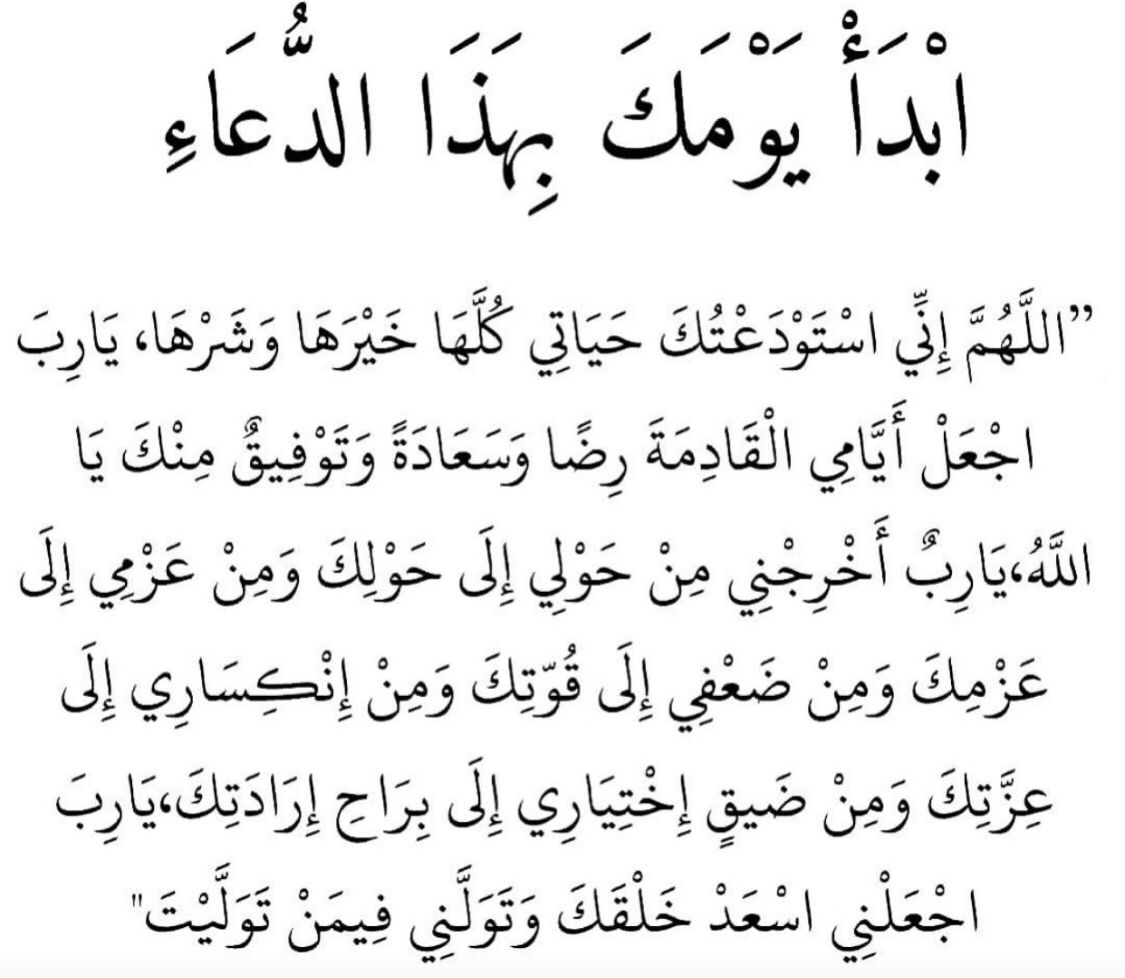 ابْدَأْ يَوْمَكَ بِهَذَا الدُّعَاءِ
”اللَّهُمَّ إِنِّي اسْتَوْدَعْتُكَ حَيَاتِي كُلَّهَا خَيْرَهَا وَشَرْهَا، يَارِبَ
اجْعَلْ أَيَّامِي الْقَادِمَةَ رِضًا وَسَعَادَةً وَتَوْفِيقٌ مِنْكَ يَا
اللَّهُ،يَارِبٌ أَخْرِجْنِي مِنْ حَوْلِي إِلَى حَوْلِكَ وَمِنْ عَزْمِي إِلَى
عَزْمِكَ وَمِنْ ضَعْفِي إِلَى قُوّتِكَ وَمِنْ إِنْكِسَارِي إِلَى
عِزَّتِكَ وَمِنْ ضَيقٍ إِخْتِيَارِي إِلَى بِرَاحِ إِرَادَتِكَ،يَارِبَ
اجْعَلْنِي اسْعَدْ خَلْقَكَ وَتَوَلَّنِي فِيمَنْ تَوَلَّيْتَ"